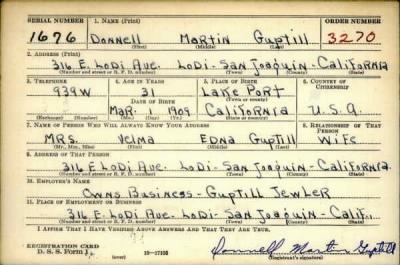 SERIAL NUMBER 1. NAME (Print) ORDER NUMBER
1676 Donnell Martin Guptill 3270
(First) (Middle) (Last)
2. ADDRESS (Print)
316 E. Lodi Ave. Lodi - San Joaquin - California
(Number and street or R. F. D. number) (Town) (County) (State)
3. TELEPHONE 4. AGE IN YEARS 5. PLACE OF BIRTH 6. COUNTRY OF CITIZENSHIP
939W 31 Lake Port
DATE OF BIRTH (Town or county)
Mar. 1 1909 California U.S.A.
(Exchange) (Number) (Mo.) (Day) (Yr.) (State or country)
7. NAME OF PERSON WHO WILL ALWAYS KNOW YOUR ADDRESS 8. RELATIONSHIP OF THAT PERSON
Mrs. Velma Edna Guptill Wife
(Mr., Mrs., Miss) (First) (Middle) (Last)
9. ADDRESS OF THAT PERSON
316 E Lodi Ave Lodi - San Joaquin - California
(Number and street or R. F. D. number) (Town) (County) (State)
10. EMPLOYER'S NAME
Owns Business - Guptill Jewler
11. PLACE OF EMPLOYMENT OR BUSINESS
316 E. Lodi Ave. Lodi - San Joaquin - Calif.
(Number and street or R. F. D. number) (Town) (County) (State)
I AFFIRM THAT I HAVE VERIFIED ABOVE ANSWERS AND THAT THEY ARE TRUE.
REGISTRATION CARD
D. S. S. Form 1 (over) 16—17105 Donnell Martin Guptill